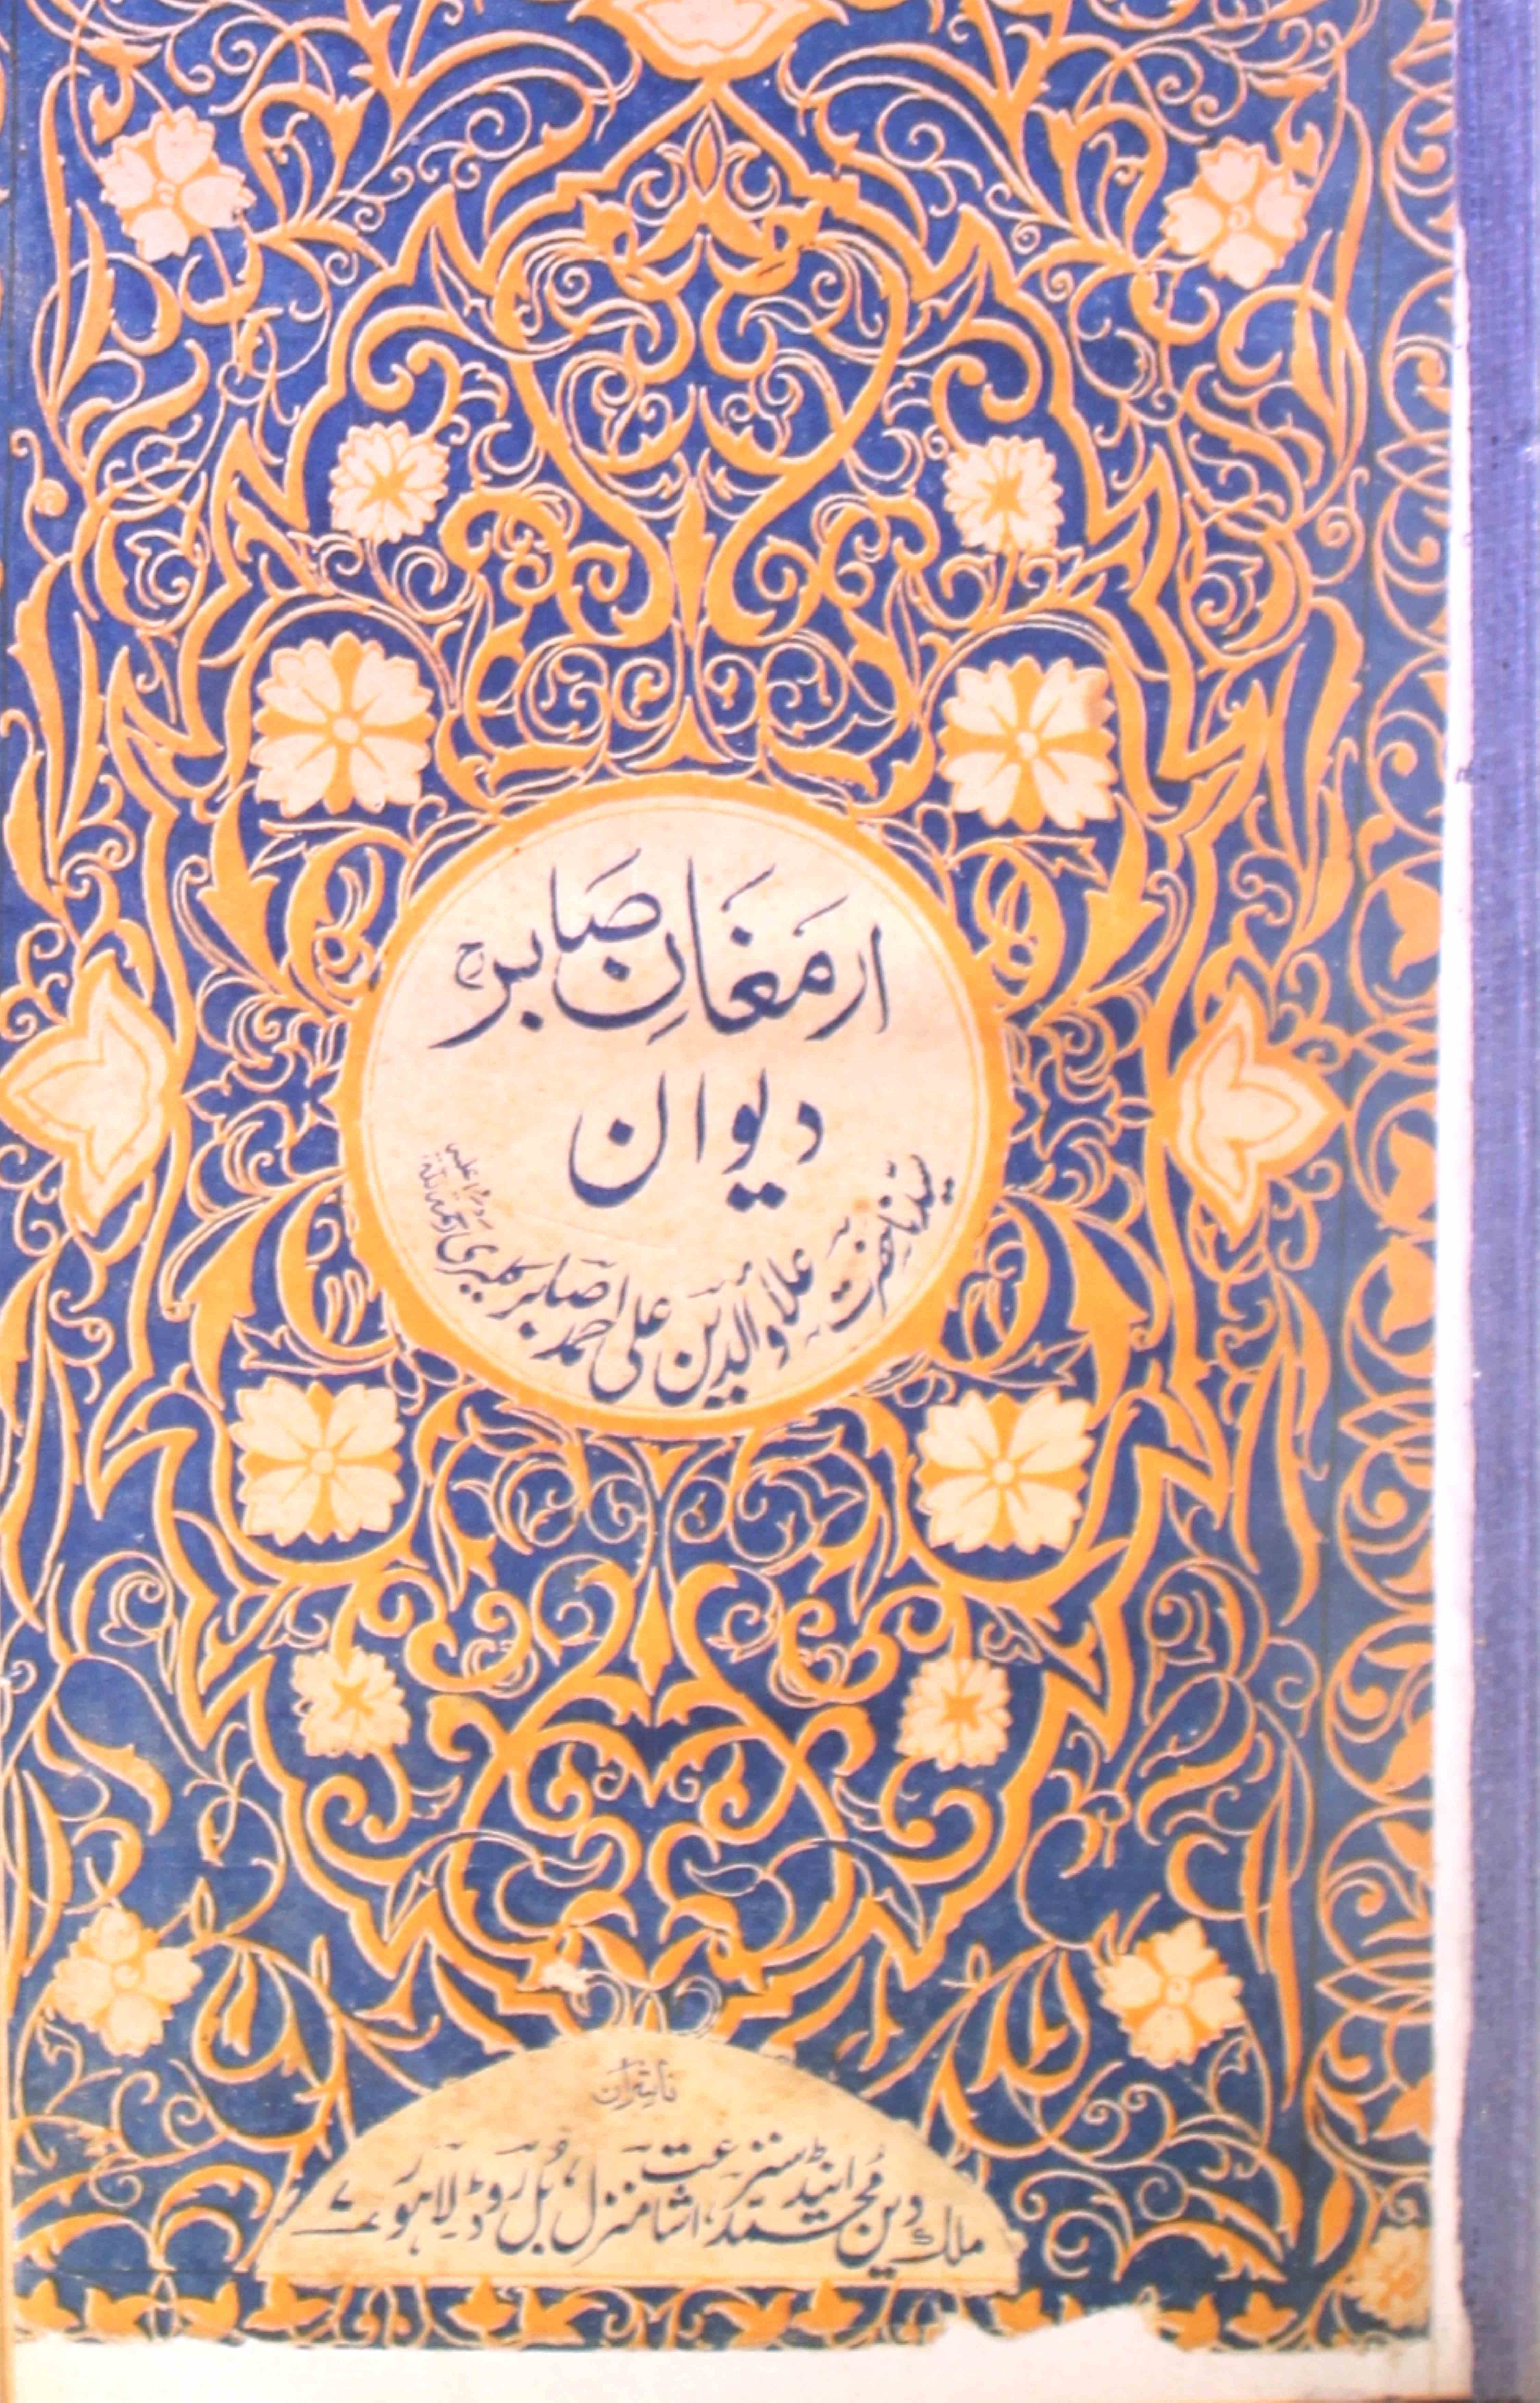 ارمغانِ صابرؒ
دیوان
سیدنا حضرت علاؤالدین علی احمد صابر کلیری رحمۃ اللہ علیہ
ناشران
ملک دین محمد اینڈ سنز اشاعت منزل، بُل روڈ لاہور ۷